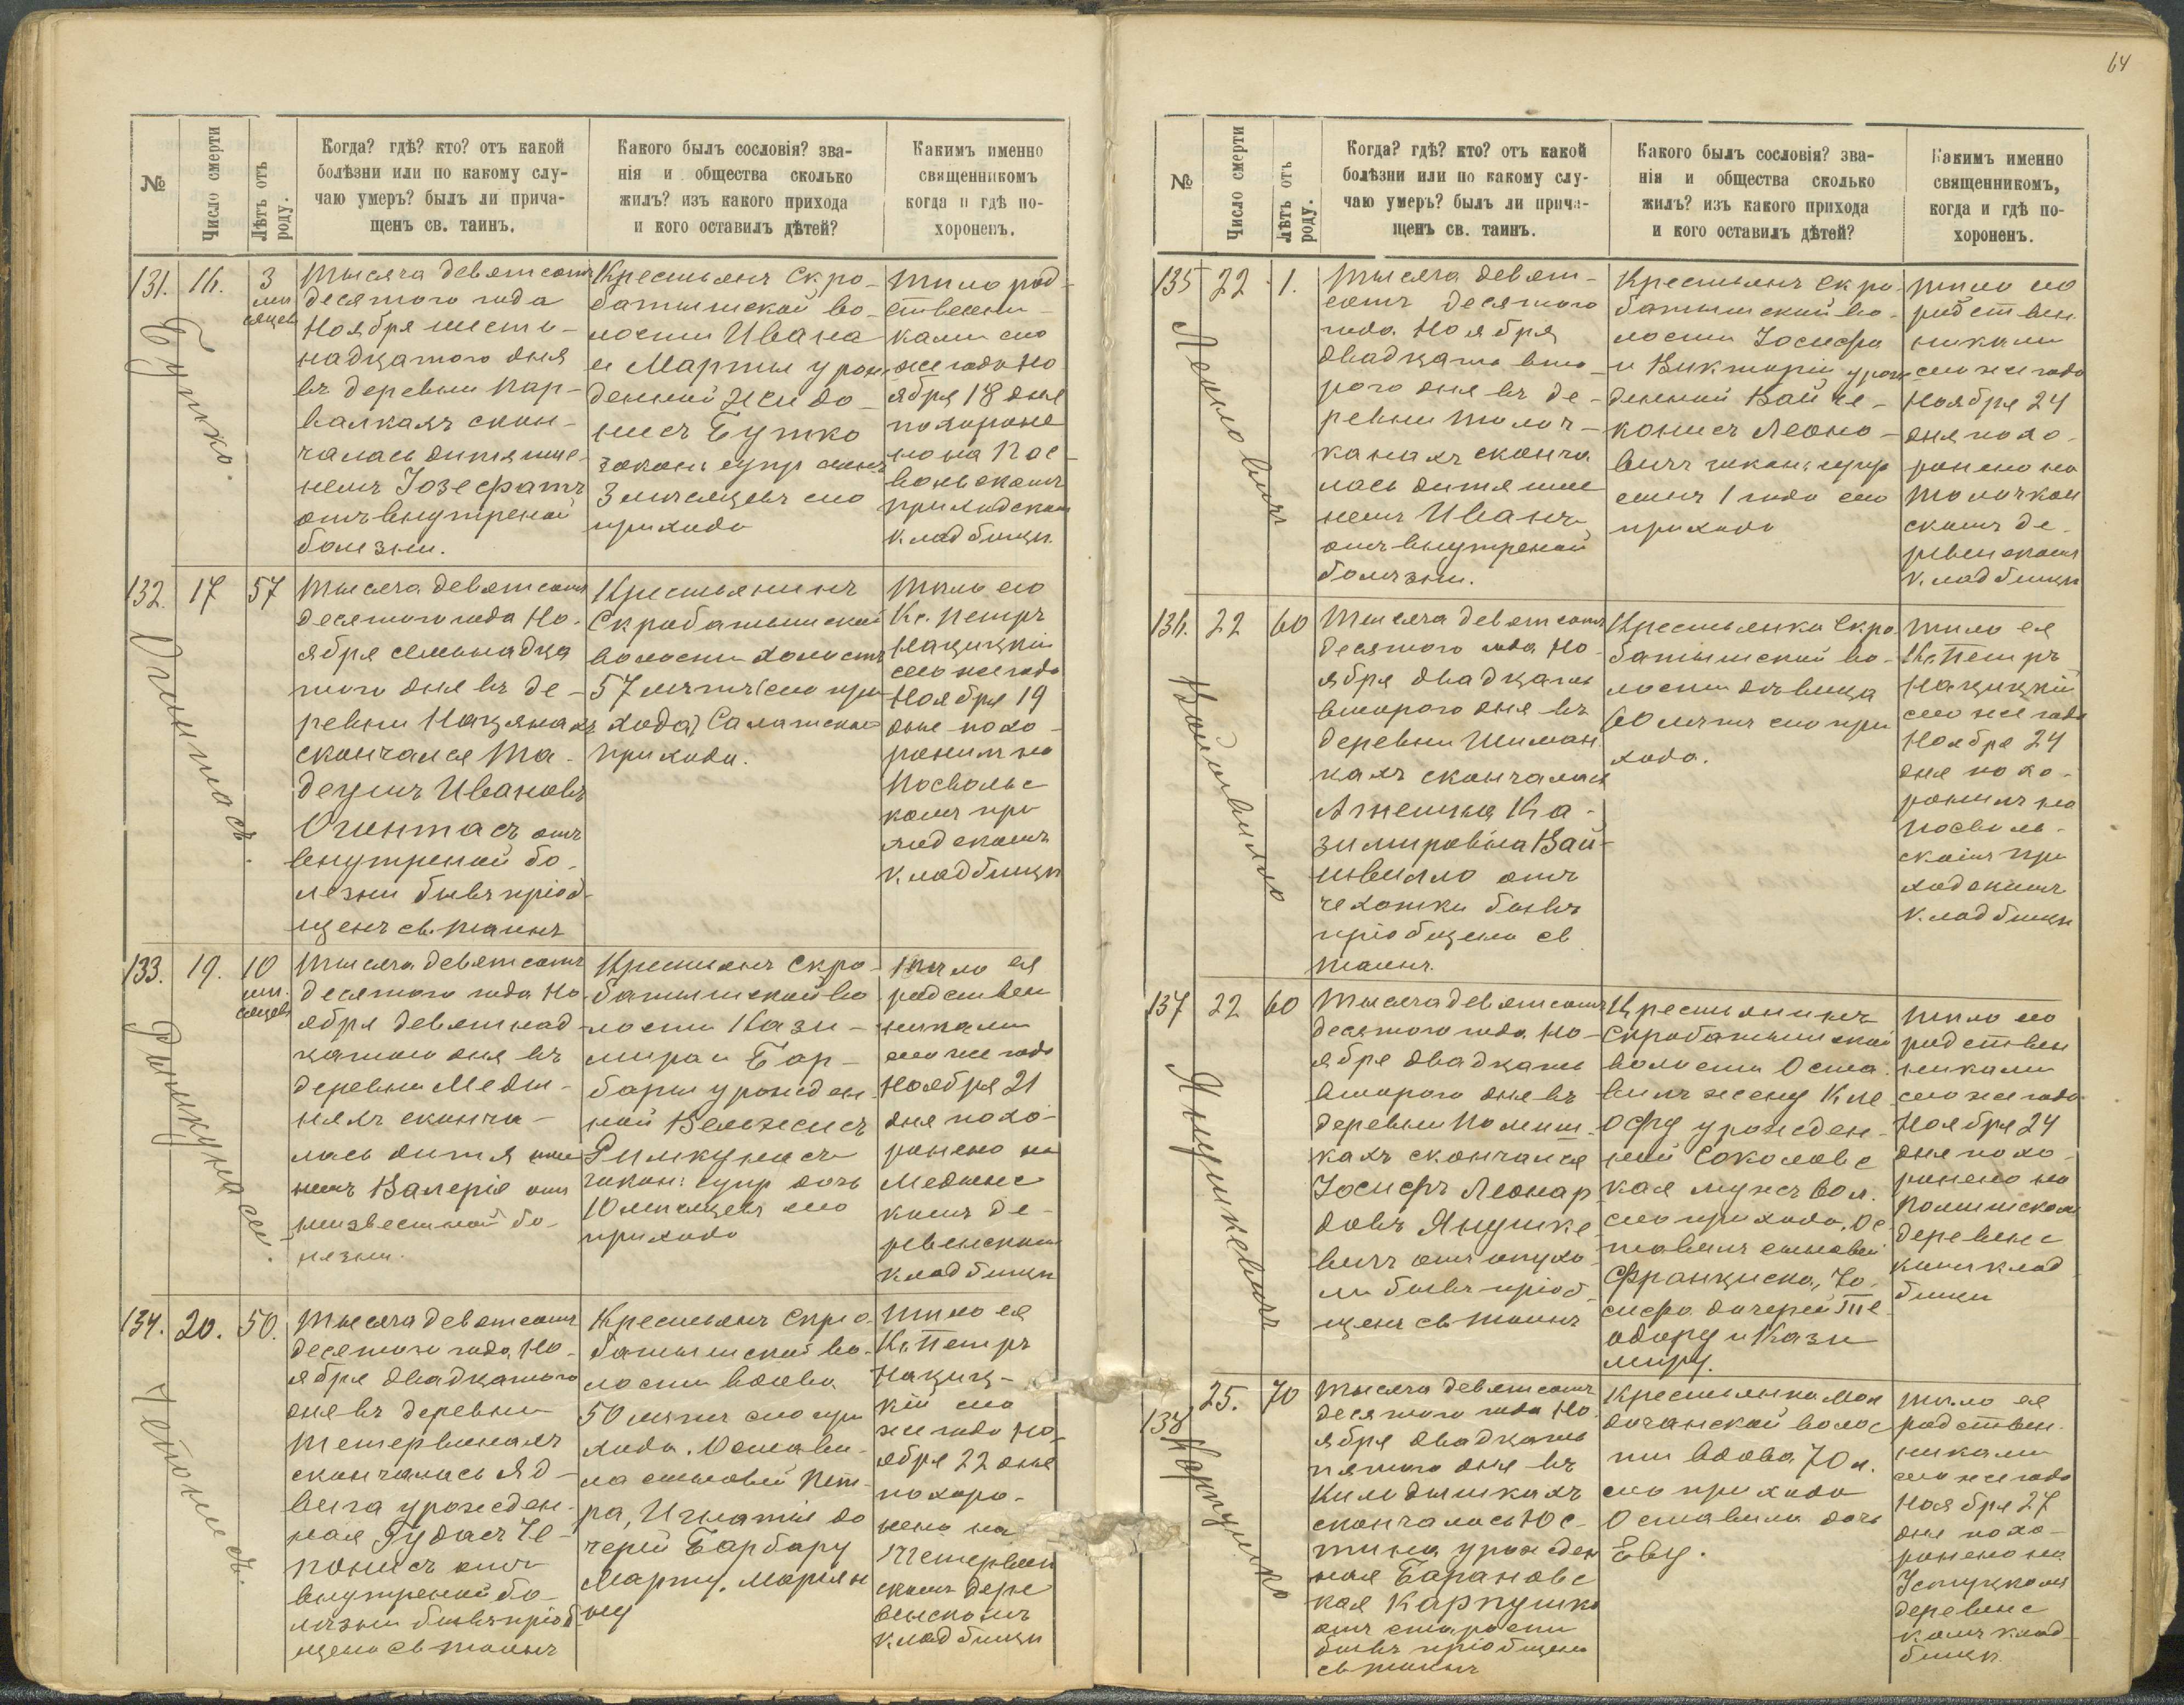 64
№
Число смерти
Лѣтъ отъ
роду.
Когда? гдѣ? кто? отъ какой
болѣзни или по какому слу-
чаю умеръ? былъ ли прича-
щенъ св. таинъ.
Какого былъ сословія? зва-
нія и общества сколько
жилъ? изъ какого прихода
и кого оставилъ дѣтей?
Какимъ именно
священникомъ
когда и гдѣ по-
хороненъ.
131. 16. 3
мѣ
сяцев
Бутко.
Тысяча девятсотъ
десятого года
Ноября шесто-
надцатого дня
въ деревни Пар-
валкахъ скон-
чалась дитя име-
немъ Іозефатъ
отъ внутреной
болезни.
Крестьянъ Скро-
батышской во-
лости Ивана
и Марты урож
денной
Бутко
закон: супр сынъ
3 мѣсяцевъ сего
прихода
Тѣло род-
ственни-
ками сего
же года Но
ября 18 дня
похороне
но на Пос
вольскомъ
приходском
кладбищи.
132. 17 57
Огинтасъ.
Тысяча девятсотъ
десятого года Но-
ября семьнадца
того дня въ де-
ревни Нацянахъ
скончался Та-
деушъ Ивановъ
Огинтасъ отъ
внутреной бо-
лезни бывъ пріоб-
щенъ св. таинъ
Крестьянинъ
Скробатышской
волости холостъ
57 лѣтъ (сего при
хода) Салатскаго
прихода.
Тѣло его
Кс. Петръ
Нацицкій
сего же года
Ноября 19
дня похо-
ронилъ на
Посвольс
комъ при
ходскомъ
кладбищи
133. 19. 10
мѣ.
сяцевъ
Римкунасъ.
Тысяча девятсотъ
десятого года Но-
ября девятнад-
цатого дня въ
деревни Меды-
няхъ сконча-
лась дитя име
немъ Валерія отъ
неизвестной бо-
лезни.
Крестьянъ Скро-
батышской во
лости Кази-
мира и Бар-
бары урожден-
ной Вельжисъ
Римкунасъ
закон: супр дочь
10 мѣсяцевъ сего
прихода
Тѣло ея
родствен
никами
сего же года
Ноября 21
дня похо-
ронено на
Медынс
комъ де-
ревенском
кладбищи
134. 20. 50.
Чепонисъ.
Тысяча девятсотъ
десятого года Но-
ября двадцатого
дня въ деревни
Тетервинахъ
скончалась Яд-
вига урожден-
ная Гудасъ Че-
понисъ отъ
внутреной бо-
лѣзни бывъ пріоб
щена св таинъ
Крестьянъ Скро-
батышской во-
лости вдова
50 лѣтъ сего при
хода. Остави-
ла сыновей Пет-
ра, Игнатія до
черей Барбару
Марту, Маріян
ну
Тѣло ея
Кс. Петръ
Нациц-
кій сего
же года Но
ября 22 дня
похоро-
нено на
Тетервин
скомъ дере
венскомъ
кладбищи
№
Число смерти
Лѣтъ отъ
роду.
Когда? гдѣ? кто? отъ какой
болѣзни или по какому слу-
чаю умеръ? былъ ли прича-
щенъ св. таинъ.
Какого былъ сословія? зва-
нія и общества сколько
жилъ? изъ какого прихода
и кого оставилъ дѣтей?
Какимъ именно
священникомъ,
когда и гдѣ по-
хороненъ.
135 22 1.
Леоновичъ
Тысяча девят-
сотъ десятого
года Ноября
двадцать вто-
рого дня въ де-
ревни Толоч-
канахъ сконча
лась дитя име
немъ Иванъ
отъ внутреной
болѣзни.
Крестьянъ Скро-
батышской во-
лости Іосифа
и Викторіи урож
денной Вайче-
конисъ Леоно-
вичъ закон: супр
сынъ 1 года сего
прихода
Тѣло его
родствен
никами
сего же года
Ноября 24
дня похо-
ронено на
Толочкон
скомъ де-
ревенскомъ
кладбищи
136. 22 60
Войшвилло
Тысяча девятсотъ
десятого года Но-
ября двадцать
второго дня въ
деревни Шиман
цахъ скончалася
Агнешка Ка-
зимировна Вай-
швилло отъ
чехотки бывъ
пріобщена св
таинъ.
Крестьянка Скро
батышской во-
лости дѣвица
60 лѣтъ сего при
хода.
Тѣло ея
Кс. Петръ
Нацицкій
сего же года
Ноября 24
дня похо-
ронилъ на
Посволь-
скомъ при
ходскомъ
кладбищи
137 22 60
Янушкевичъ
Тысяча девятсотъ
десятого года Но-
ября двадцать
второго дня въ
деревни Помиш-
кахъ скончался
Іосифъ Леонар
довъ Янушке
вичъ отъ опухо
ли бывъ пріоб-
щенъ св таинъ
Крестьянинъ
Скробатышской
волости Оста-
вилъ жену Кле
офу урожден-
ной Соколовс
кая мужъ 60 л.
сего прихода. Ос
тавилъ сыновей
Франциска, Іо-
сифа дочерей Те
одору и Кази
миру.
Тѣло его
родствен
никами
сего же года
Ноября 24
дня похо-
ронено на
Помишском
деревенс
комъ клад
бищи
138 25. 70
Карпушко
Тысяча девятсотъ
десятого года Но
ября двадцать
пятого дня въ
Килодишкахъ
скончалась Юс-
тина урожден
ная Барановс
кая Карпушко
отъ старости
бывъ пріобщена
св таинъ
Крестьянка
волос
ти вдова 70 л.
сего прихода
Оставила дочь
Еву.
Тѣло ея
родствен-
никами
сего же года
Ноября 27
дня похо-
ронено на
деревенс
комъ клад-
бищи.